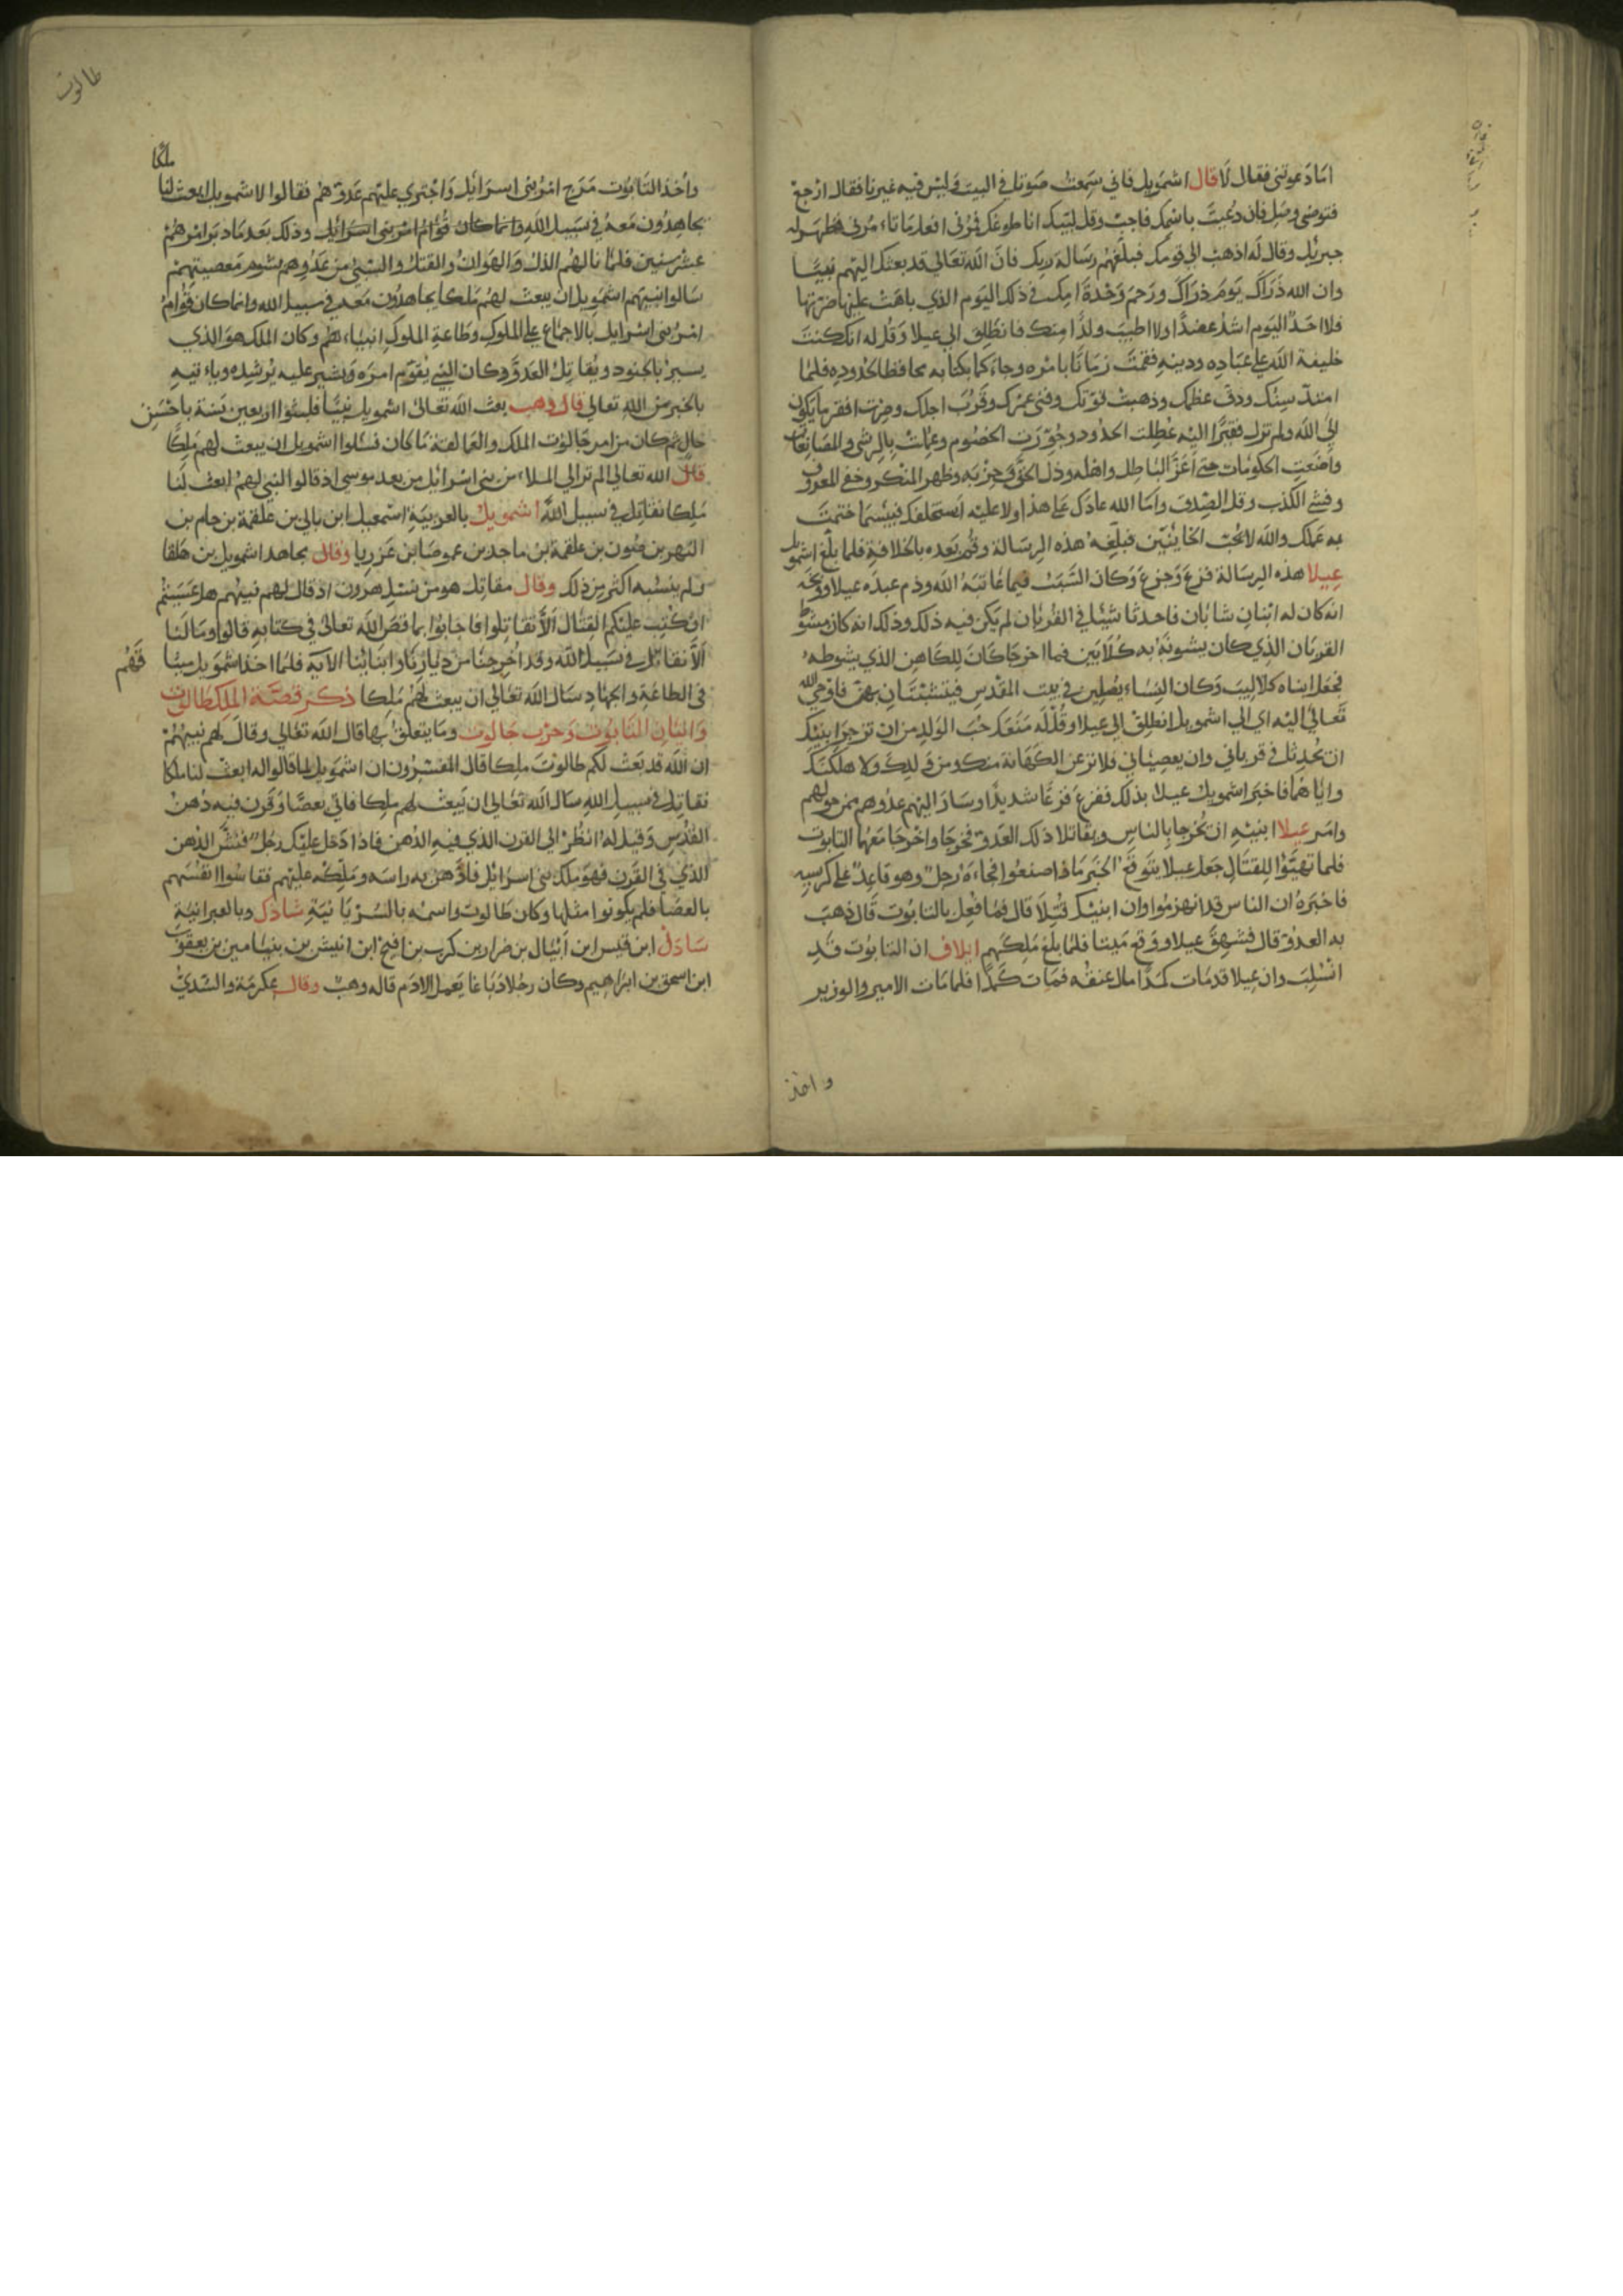 اما دعوتنى فقال لا قال اشمويل فاني سمعت صوتك في البيت وليس فيه غيرنا فقال ارجع
فتوضى وصل فان دعيت باسمك فاجب وقل لبيك انا طوعك فمرنى افعل ما تامرنى فظهر له
جبريل وقال له اذهب الى قومك فبلغهم رسالة ربك فان الله تعالى قد بعثك اليهم نبيا
وان الله ذراك يوم ذراك ورحم وحدة امك في ذلك اليوم الذي باهت عليها ضرتها
فلا احد اليوم اشد عضدا ولا اطيب ولدا منك فانطلق الي عيلا وقل له انك كنت
خليفة الله على عباده ودينه فقمت زمانا بامره وحاكما بكتابه محافظا لحدوده فلما
امتد سنك ودق عظمك وذهبت قوتك وفنى عمرك وقرب اجلك وصرت افقر ما يكون
الى الله ولم تزل فقيرا اليه عطلت الحدود وجورت الخصوم وعملت بالرشى والمصانعات
واضعت الحكومات حتى اعز الباطل واهله وذل الحق وحزبه وظهر المنكر وخفى المعروف
وفشى الكذب وقل الصدق واما الله عادك على هذا ولا عليه استخلفك فبيسما ختمت
به عملك والله لا يحب الخاينين فبلغه هذه الرسالة وقم بعده بالخلافة فلما بلغ اشمويل
عيلا هذه الرسالة فزع وجزع وكان السبب فيما عاتبه الله وذم عبده عيلا ووبخه
انه كان له ابنان شابان فاحدثا شيئا في القربان لم يكن فيه ذلك وذلك انه كان مشوط
القربان الذي كان يشوطه به كلابين فما اخرجا كان للكاهن الذي يشوطه
فجعل ابناه كلاليب وكان النساء يصلين في بيت المقدس فيتشبثان بهن فاوحى الله
تعالى اليه اي الى اشمويل انطلق الى عيلا وقل له منعك حب الولد من ان تزجر ابنيك
ان يحدثا في قرباني وان يعصياني فلانزعن الكهانة منك ومن ولدك ولاهلكنك
واياهما فاخبر اشمويل عيلا بذلك ففزع فزعا شديدا وسار اليهم عدوهم ممن حولهم
وامر عيلا ابنيه ان يخرجا بالناس ويقاتلا ذلك العدو فخرجا واخرجا معهما التابوت
فلما تهيئوا للقتال جعل عيلا يتوقع الخبر ماذا صنعوا فجاءه رجل وهو قاعد على كرسيه
فاخبره ان الناس قد انهزموا وان ابنيك قتلا قال فما فعل بالتابوت قال ذهب
به العدو قال فشهق عيلا ووقع ميتا فلما بلغ ملكهم ايلاف ان التابوت قد
استلب وان عيلا قد مات كمدا مال عنقه فمات كمدا فلما مات الامير والوزير
واخذ
طالوت
واخذ التابوت مرج امر بنى اسرايل واجترى عليهم عدوهم فقالوا لاشمويل ابعث لنا ملكا
يجاهدون معه في سبيل الله وانما كان قوام امر بنى اسرائيل وذلك بعد ما دبر امرهم
عشر سنين فلما نالهم الذل والهوان والقتل والسبى من عدوهم بشوم معصيتهم
سالوا نبيهم اشمويل ان يبعث لهم ملكا يجاهدون معه في سبيل الله وانما كان قوام
امر بنى اسرايل بالاجتماع على الملوك وطاعة الملوك انبياءهم وكان الملك هو الذي
يسير بالجنود ويقاتل العدو وكان النبي يقوم امره ويشير عليه يرشده وياءتيه
بالخبر من الله تعالى قال وهب بعث الله تعالى اشمويل نبيا فلبثوا اربعين سنة باحسن
حال ثم كان من امر جالوت الملك والعمالقة ما كان فسئلوا اشمويل ان يبعث لهم ملكا
قال الله تعالى الم تر الي الملاء من بنى اسرائل من بعد موسى اذ قالوا لنبي لهم ابعث لنا
ملكا نقاتل في سبيل الله اشمويل بالعربية اسمعيل ابن بالي بن علقمة بن حام بن
النهر بن صون بن علقمة بن ماجد بن عموصا بن عزريا وقال مجاهد اشمويل بن هلقا
ولم ينسبه اكثر من ذلك وقال مقاتل هو من نسل هرون اذ قال لهم نبيهم هل عسيتم
ان كتب عليكم القتال الا تقاتلوا فاجابوا بما قص الله تعالى في كتابه قالوا وما لنا
الا نقاتل في سبيل الله وقد اخرجنا من ديارنا وابنائنا الاية فلما اخذ اشمويل ميثاقهم
فى الطاعة والجهاد سال الله تعالى ان يبعث لهم ملكا ذكر قصة الملك طالوت
واتيان التابوت وحرب جالوت وما يتعلق بها قال الله تعالى وقال لهم نبيهم
ان الله قد بعث لكم طالوت ملكا قال المفسرون ان اشمويل لما قالوا له ابعث لنا ملكا
نقاتل في سبيل الله سال الله تعالى ان يبعث لهم ملكا فاتى بعصا وقرن فيه دهن
القدس وقيل له انظر الى القرن الذي فيه الدهن فاذا دخل عليك رجل فنش الدهن
الذي في القرن فهو ملك بنى اسرائل فادهن به راسه وملكه عليهم فقاسوا انفسهم
بالعصا فلم يكونوا مثلها وكان طالوت واسمه بالسريانية شاول وبالعبرانية
ساول ابن قيس ابن ابيال بن ضرار بن كرب بن افيح ابن انيس بن بنيامين بن يعقوب
ابن اسحق بن ابراهيم وكان رجلا دباغا يعمل الادم قاله وهب وقال عكرمة والسدى